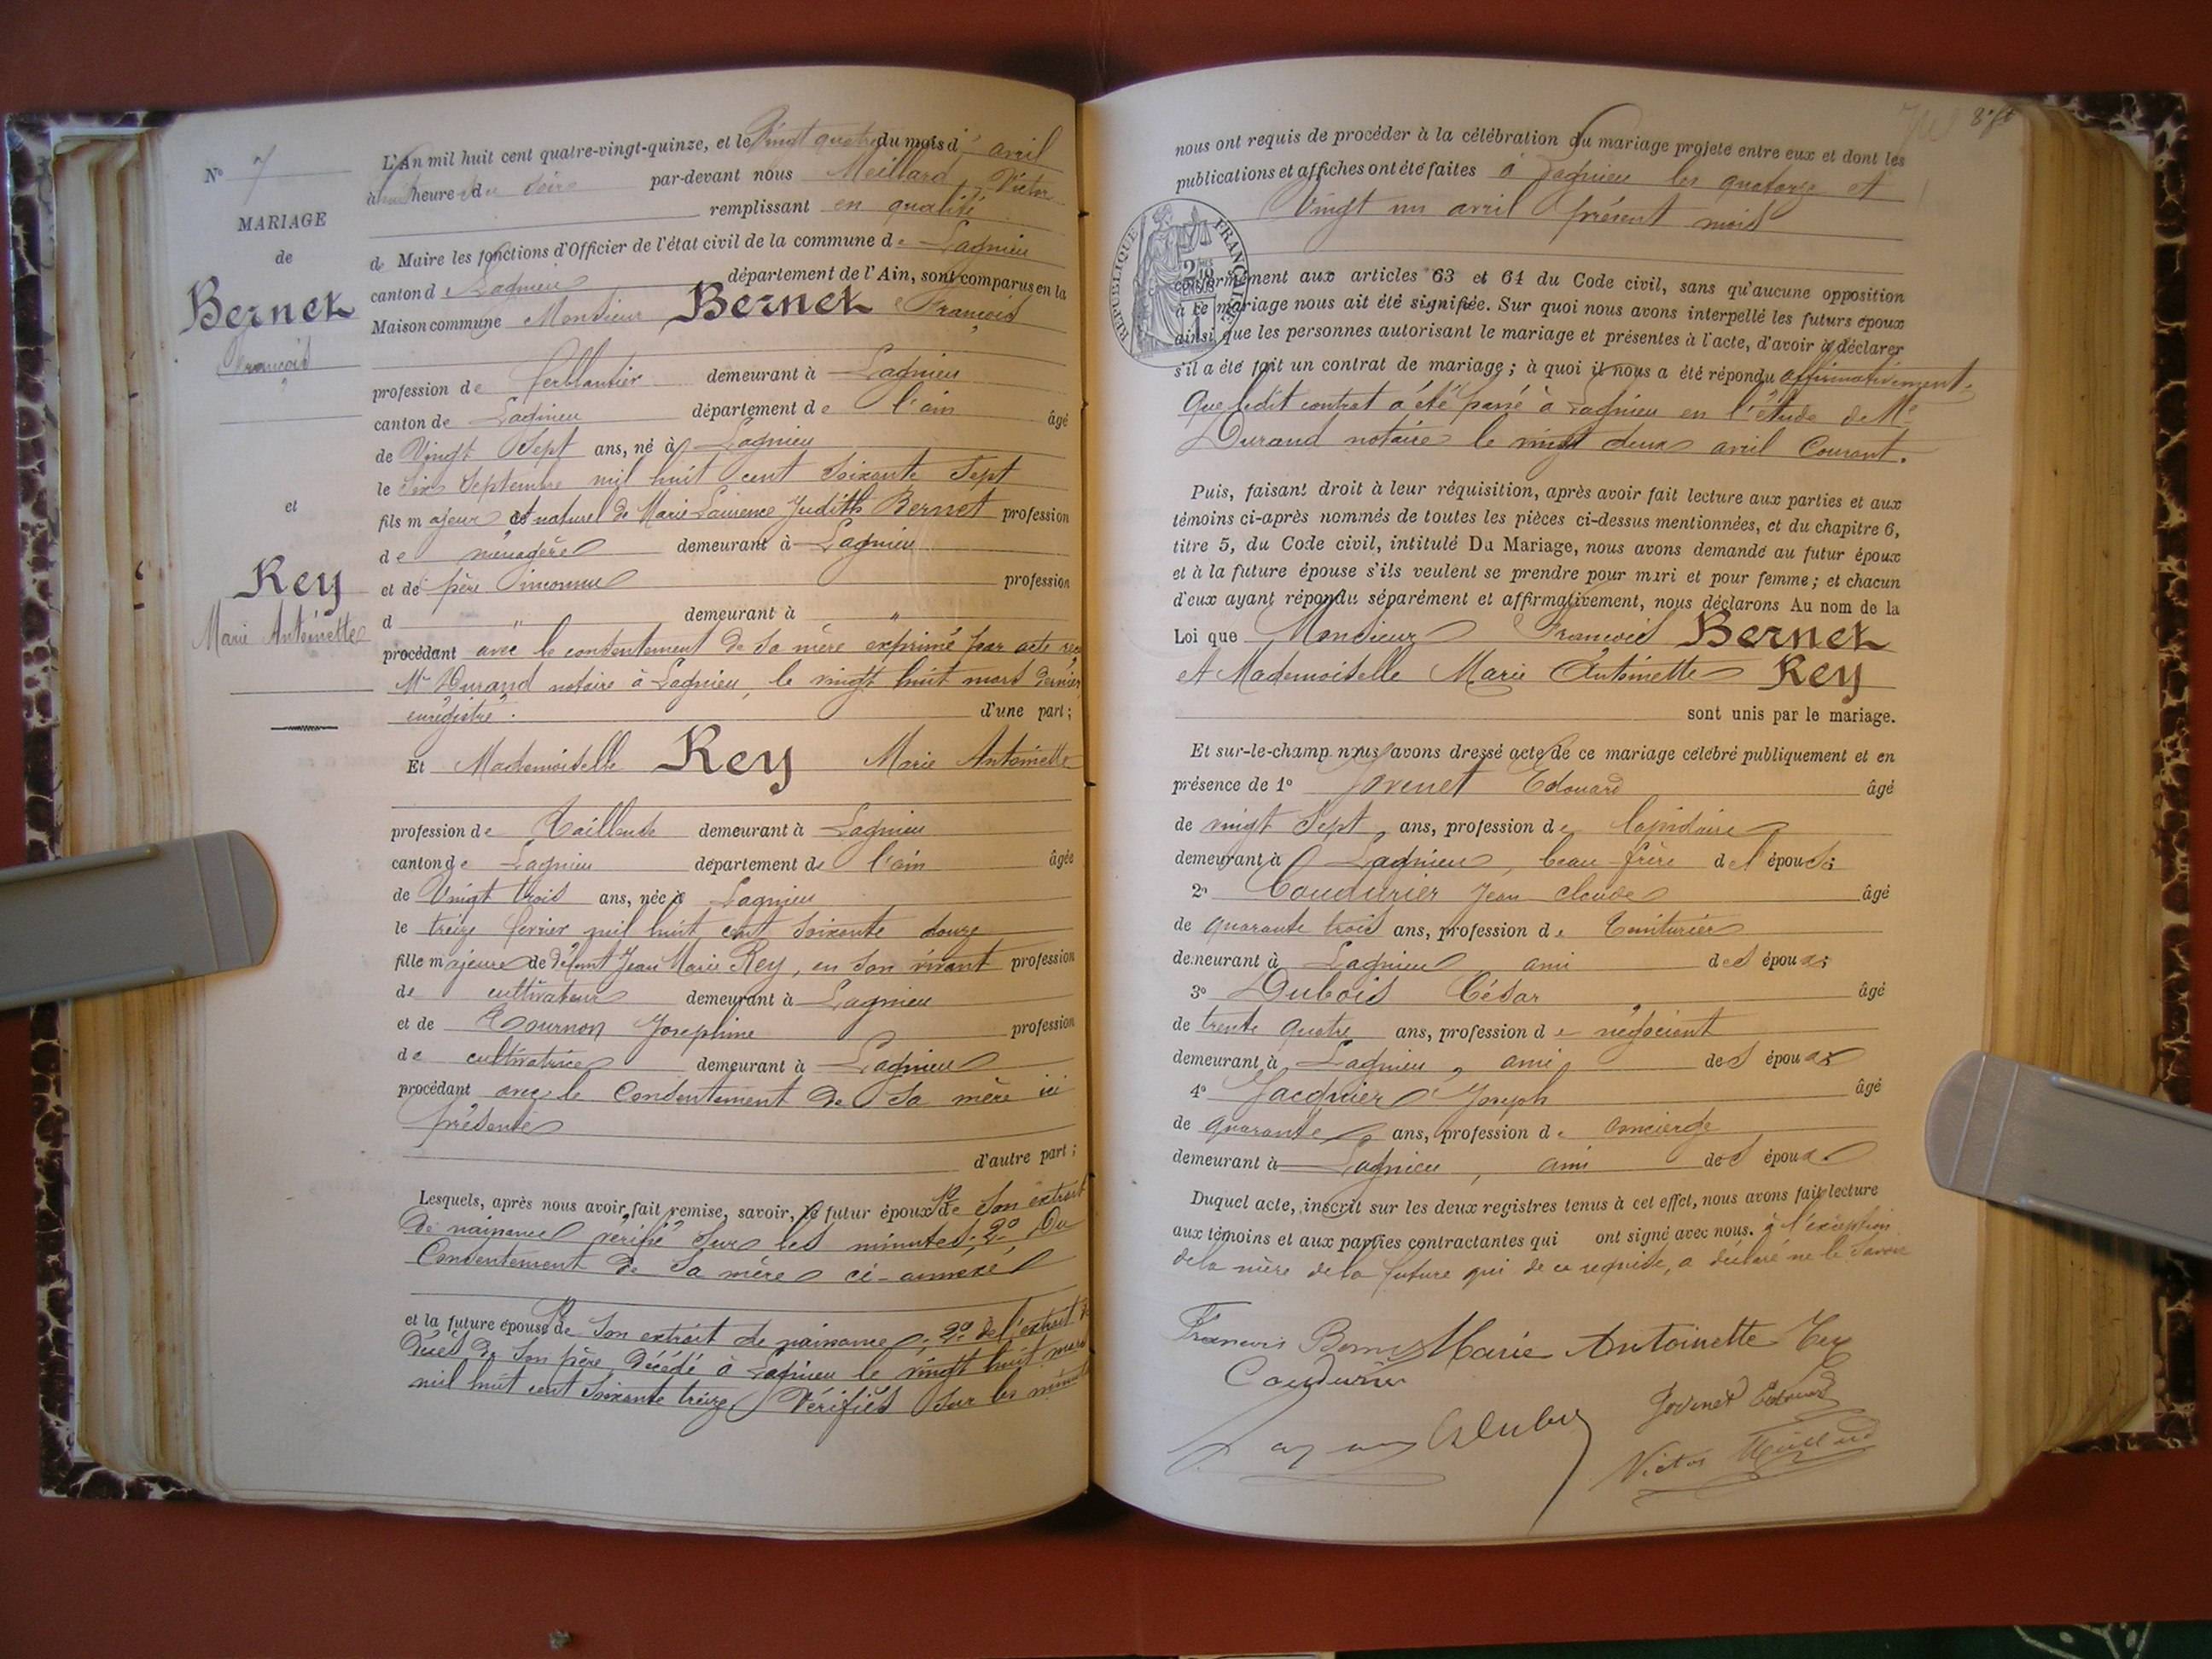 N° 7
MARIAGE
de
Bernet
François
et
Rey
Marie Antoinette
L'An mil huit cent quatre-vingt-quinze, et le Vingt quatre du mois d'avril
à heure du soir par-devant nous Meillard Victor
remplissant en qualité
de Maire les fonctions d'Officier de l'état civil de la commune de Lagnieu
canton de Lagnieu département de l'Ain, sont comparus en la
Maison commune Monsieur Bernet François
profession de ferblantier demeurant à Lagnieu
canton de Lagnieu département de l'ain âgé
de Vingt Sept ans, né à Lagnieu
le Six Septembre mil huit cent soixante Sept
fils majeur et naturel de Marie Laurence Judith Bernet profession
de ménagère demeurant à Lagnieu
et de père inconnu profession
d " demeurant à "
procédant avec le consentement de sa mère exprimé par acte
Me Durand notaire à Lagnieu, le vingt huit mars dernier
enregistré. d'une part;
Et Mademoiselle Rey Marie Antoinette
profession de Tailleuse demeurant à Lagnieu
canton de Lagnieu département de l'ain âgée
de Vingt trois ans, née à Lagnieu
le treize février mil huit cent soixante douze
fille majeure de défunt Jean Marie Rey, en son vivant profession
de cultivateur demeurant à Lagnieu
et de Tournon Josephine profession
de cultivatrice demeurant à Lagnieu
procédant avec le consentement de sa mère ici
présente
d'autre part;
Lesquels, après nous avoir fait remise, savoir, le futur époux 1° de son extrait
de naissance vérifié sur les minutes; 2° Du
Consentement de sa mère ci-annexé
et la future épouse 1° de son extrait de naissance; 2° de l'extrait de
décès de son père, décédé à Lagnieu le vingt huit mars
mil huit cent soixante treize Vérifiés sur les minutes
nous ont requis de procéder à la célébration du mariage projeté entre eux et dont les
publications et affiches ont été faites à Lagnieu les quatorze et
Vingt un avril présent mois
RÉPUBLIQUE FRANÇAISE
conformément aux articles 63 et 64 du Code civil, sans qu'aucune opposition
à ce mariage nous ait été signifiée. Sur quoi nous avons interpellé les futurs époux
ainsi que les personnes autorisant le mariage et présentes à l'acte, d'avoir à déclarer
s'il a été fait un contrat de mariage; à quoi il nous a été répondu affirmativement.
Que ledit contrat a été passé à Lagnieu en l'étude de Me
Durand notaire le vingt deux avril Courant.
Puis, faisant droit à leur réquisition, après avoir fait lecture aux parties et aux
témoins ci-après nommés de toutes les pièces ci-dessus mentionnées, et du chapitre 6,
titre 5, du Code civil, intitulé Du Mariage, nous avons demandé au futur époux
et à la future épouse s'ils veulent se prendre pour mari et pour femme; et chacun
d'eux ayant répondu séparément et affirmativement, nous déclarons Au nom de la
Loi que Monsieur François Bernet
et Mademoiselle Marie Antoinette Rey
sont unis par le mariage.
Et sur-le-champ nous avons dressé acte de ce mariage célébré publiquement et en
présence de 1° Jovenet Edouard âgé
de vingt Sept ans, profession de lapidaire
demeurant à Lagnieu, beau-frère de l'épouse
2° Coudurier Jean Claude âgé
de quarante trois ans, profession de Teinturier
demeurant à Lagnieu ami des époux
3° Dubois César âgé
de trente quatre ans, profession de négociant
demeurant à Lagnieu, ami des époux
4° Jacquier Joseph âgé
de quarante ans, profession de concierge
demeurant à Lagnieu, ami des époux
Duquel acte, inscrit sur les deux registres tenus à cet effet, nous avons fait lecture
aux témoins et aux parties contractantes qui ont signé avec nous. à l'exception
de la mère de la future qui de ce requise, a déclaré ne le savoir
François Bernet Marie Antoinette Rey
Coudurier
Jovenet Edouard
Victor Meillard